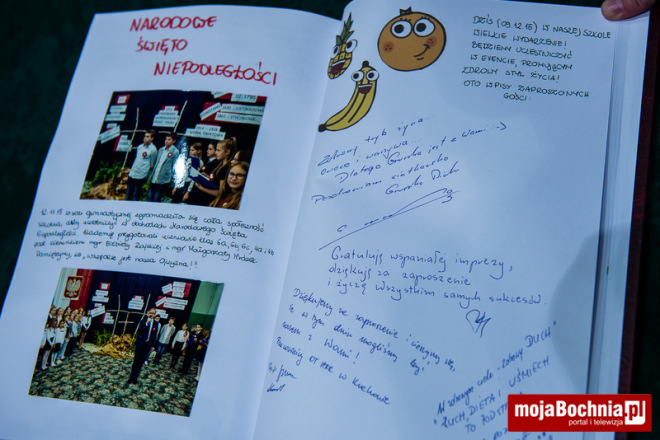 NARODOWE
ŚWIĘTO
NIEPODLEGŁOŚCI
12.11.15 w sali gimnastycznej zgromadziła się cała społeczność
szkolna, aby uczestniczyć w obchodach Narodowego Święta
Niepodległości. Akademię przygotowali uczniowie klas 6a, 6b, 6c, 4a, 4b
pod kierunkiem mgr Elżbiety i mgr Małgorzaty
Pamiętajmy, że "Wszędzie jest nasza Ojczyzna"!
DZIŚ (09.12.15) W NASZEJ SZKOLE
WIELKIE WYDARZENIE!
BĘDZIEMY UCZESTNICZYĆ
W EVENCIE, PROMUJĄCYM
ZDROWY STYL ŻYCIA!
OTO WPISY ZAPROSZONYCH
GOŚCI:
Zdrowy tryb życia -
owoce i warzywa.
Dlatego jest z Wami :-)
Pozdrawiam
Gratuluję wspaniałej imprezy,
dziękuję za zaproszenie
i życzę wszystkim samych sukcesów.
Dziękujemy za zaproszenie i cieszymy się,
że w tym dniu mogliśmy być
razem z Wami!
Pracownicy OT ARR w Krakowie
"W zdrowym ciele - zdrowy DUCH"
"RUCH, DIETA I UŚMIECH
TO PODSTAWA
mojaBochnia.pl
portal i telewizja